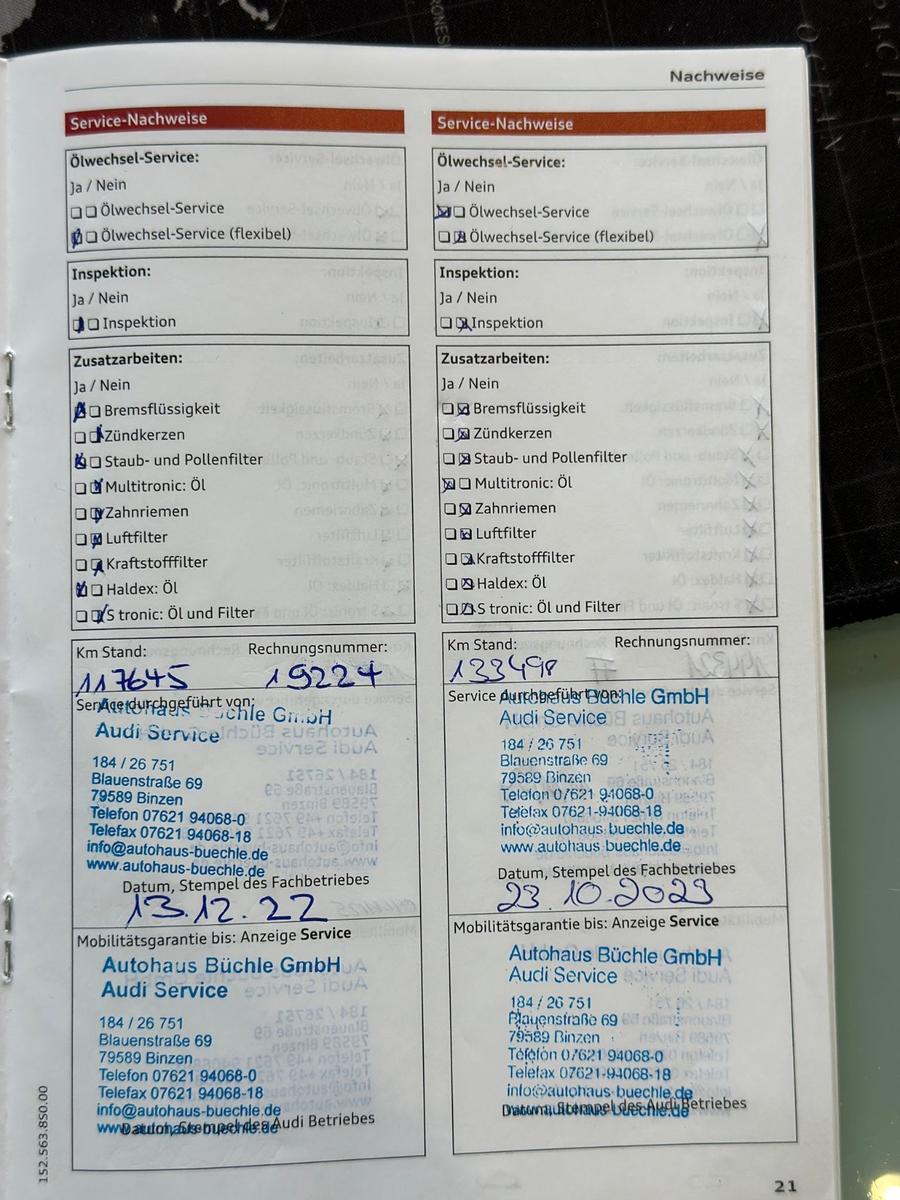 Nachweise
Service-Nachweise
Ölwechsel-Service:
Ja / Nein
Ölwechsel-Service
Ölwechsel-Service (flexibel)
Inspektion:
Ja / Nein
Inspektion
Zusatzarbeiten:
Ja / Nein
Bremsflüssigkeit
Zündkerzen
Staub- und Pollenfilter
Multitronic: Öl
Zahnriemen
Luftfilter
Kraftstofffilter
Haldex: Öl
S tronic: Öl und Filter
Km Stand: Rechnungsnummer:
117645 19224
Service durchgeführt von:
Autohaus Büchle GmbH
Audi Service
184 / 26 751
Blauenstraße 69
79589 Binzen
Telefon 07621 94068-0
Telefax 07621 94068-18
info@autohaus-buechle.de
www.autohaus-buechle.de
Datum, Stempel des Fachbetriebes
13.12.22
Mobilitätsgarantie bis: Anzeige Service
Autohaus Büchle GmbH
Audi Service
184 / 26 751
Blauenstraße 69
79589 Binzen
Telefon 07621 94068-0
Telefax 07621 94068-18
info@autohaus-buechle.de
www.autohaus-buechle.de
Datum, Stempel des Audi Betriebes
Service-Nachweise
Ölwechsel-Service:
Ja / Nein
Ölwechsel-Service
Ölwechsel-Service (flexibel)
Inspektion:
Ja / Nein
Inspektion
Zusatzarbeiten:
Ja / Nein
Bremsflüssigkeit
Zündkerzen
Staub- und Pollenfilter
Multitronic: Öl
Zahnriemen
Luftfilter
Kraftstofffilter
Haldex: Öl
S tronic: Öl und Filter
Km Stand: Rechnungsnummer:
133498
Service durchgeführt von:
Autohaus Büchle GmbH
Audi Service
184 / 26 751
Blauenstraße 69
79589 Binzen
Telefon 07621 94068-0
Telefax 07621-94068-18
info@autohaus-buechle.de
www.autohaus-buechle.de
Datum, Stempel des Fachbetriebes
23.10.2023
Mobilitätsgarantie bis: Anzeige Service
Autohaus Büchle GmbH
Audi Service
184 / 26 751
Blauenstraße 69
79589 Binzen
Telefon 07621 94068-0
Telefax 07621-94068-18
info@autohaus-buechle.de
www.autohaus-buechle.de
Datum, Stempel des Audi Betriebes
152.563.8S0.00
21